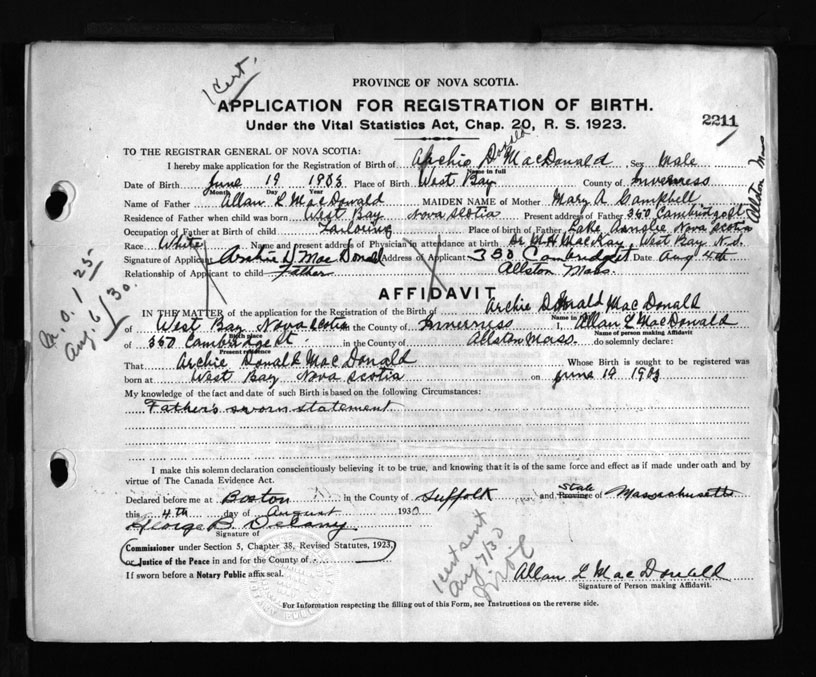 1 Cert.
PROVINCE OF NOVA SCOTIA.
APPLICATION FOR REGISTRATION OF BIRTH.
Under the Vital Statistics Act, Chap. 20, R. S. 1923.
2211
TO THE REGISTRAR GENERAL OF NOVA SCOTIA:
Donald
I hereby make application for the Registration of Birth of Archie D. MacDonald Sex Male
Name in full
Date of Birth June 19 1903 Place of Birth West Bay County of Inverness
Month Day Year
Name of Father Allan L MacDonald MAIDEN NAME of Mother Mary A Campbell
Residence of Father when child was born West Bay Nova Scotia Present address of Father 350 Cambridge St.
Allston Mass
Occupation of Father at Birth of child Place of birth of Father Lake Ainslie Nova Scotia
Race White Name and present address of Physician in attendance at birth Dr West Bay N.S.
Signature of Applicant Archie D MacDonald Address of Applicant 350 Cambridge St. Date Aug 4th
Relationship of Applicant to child Father Allston Mass.
A.O. 1 25
Aug. 6/30.
AFFIDAVIT
IN THE MATTER of the application for the Registration of the Birth of Archie Donald MacDonald
Name in full
of West Bay Nova Scotia in the County of Inverness I, Allan L MacDonald
Birth place Name of person making Affidavit
of 350 Cambridge St. in the County of Allston Mass. do solemnly declare:
Present residence
That Archie Donald MacDonald Whose Birth is sought to be registered was
born at West Bay Nova Scotia on June 19 1903
My knowledge of the fact and date of such Birth is based on the following Circumstances:
Father's sworn statement
I make this solemn declaration conscientiously believing it to be true, and knowing that it is of the same force and effect as if made under oath and by
virtue of The Canada Evidence Act.
Declared before me at Boston in the County of Suffolk and State Province of Massachusetts
this 4th day of August 1930
George B. Delany
Signature of
Commissioner under Section 5, Chapter 38, Revised Statutes, 1923,
or Justice of the Peace in and for the County of
If sworn before a Notary Public affix seal.
1 cert sent
Aug 7/30
Allan L MacDonald
Signature of Person making Affidavit.
For Information respecting the filling out of this Form, see Instructions on the reverse side.